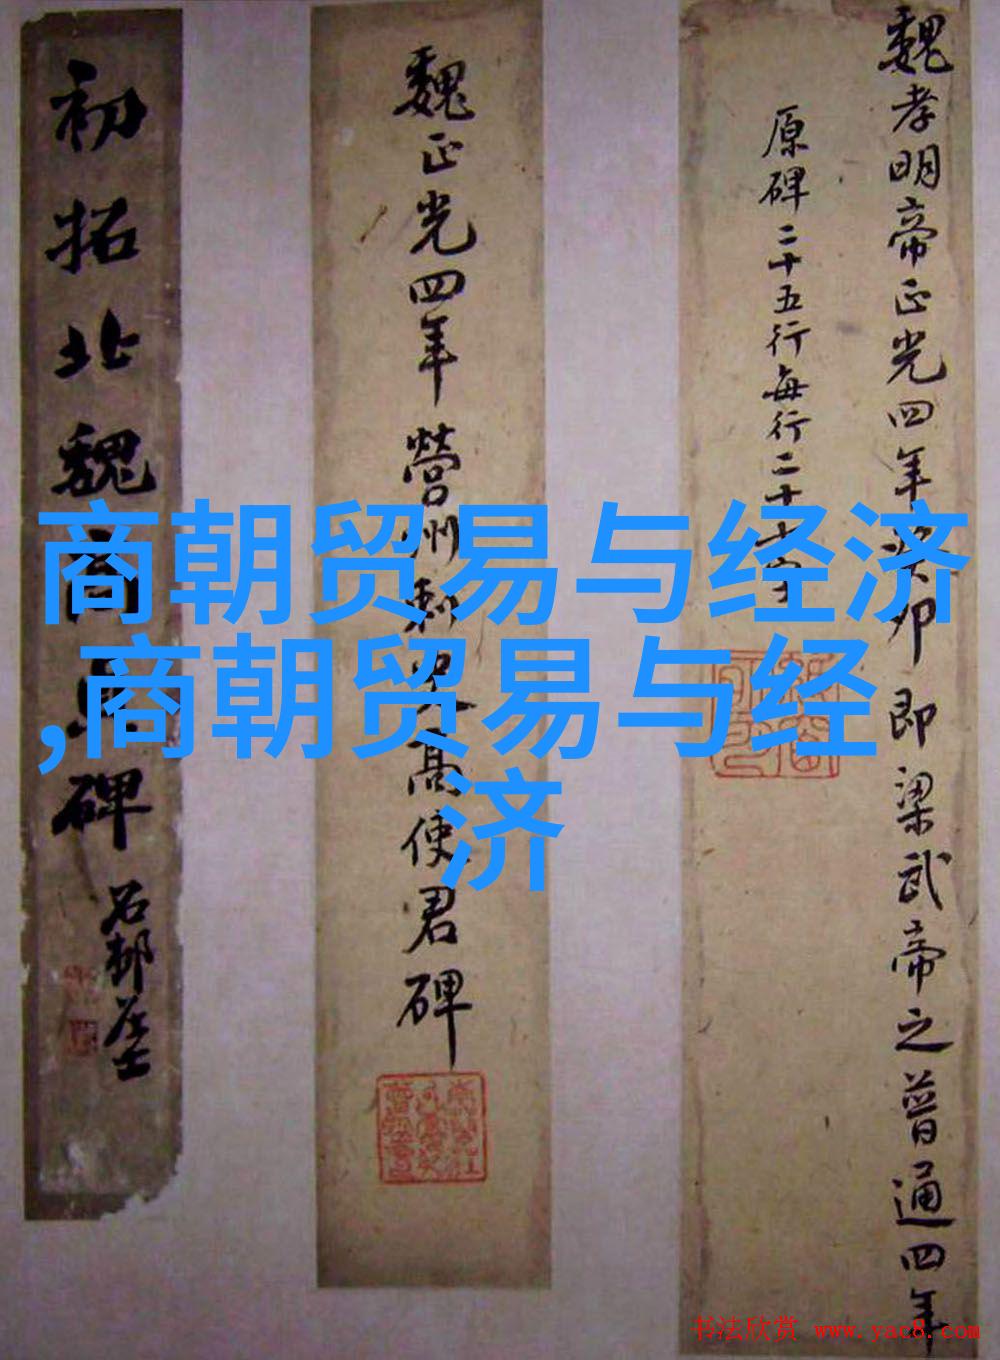 魏孝明帝正光四年癸卯即梁武帝之普通四年
原碑二十五行每行二十七字
魏正光四年營州刺史高使君碑
初拓北魏高貞碑
石邨
商朝贸易与经济
,商朝贸易与经
济
书法欣赏 www.yac8.com